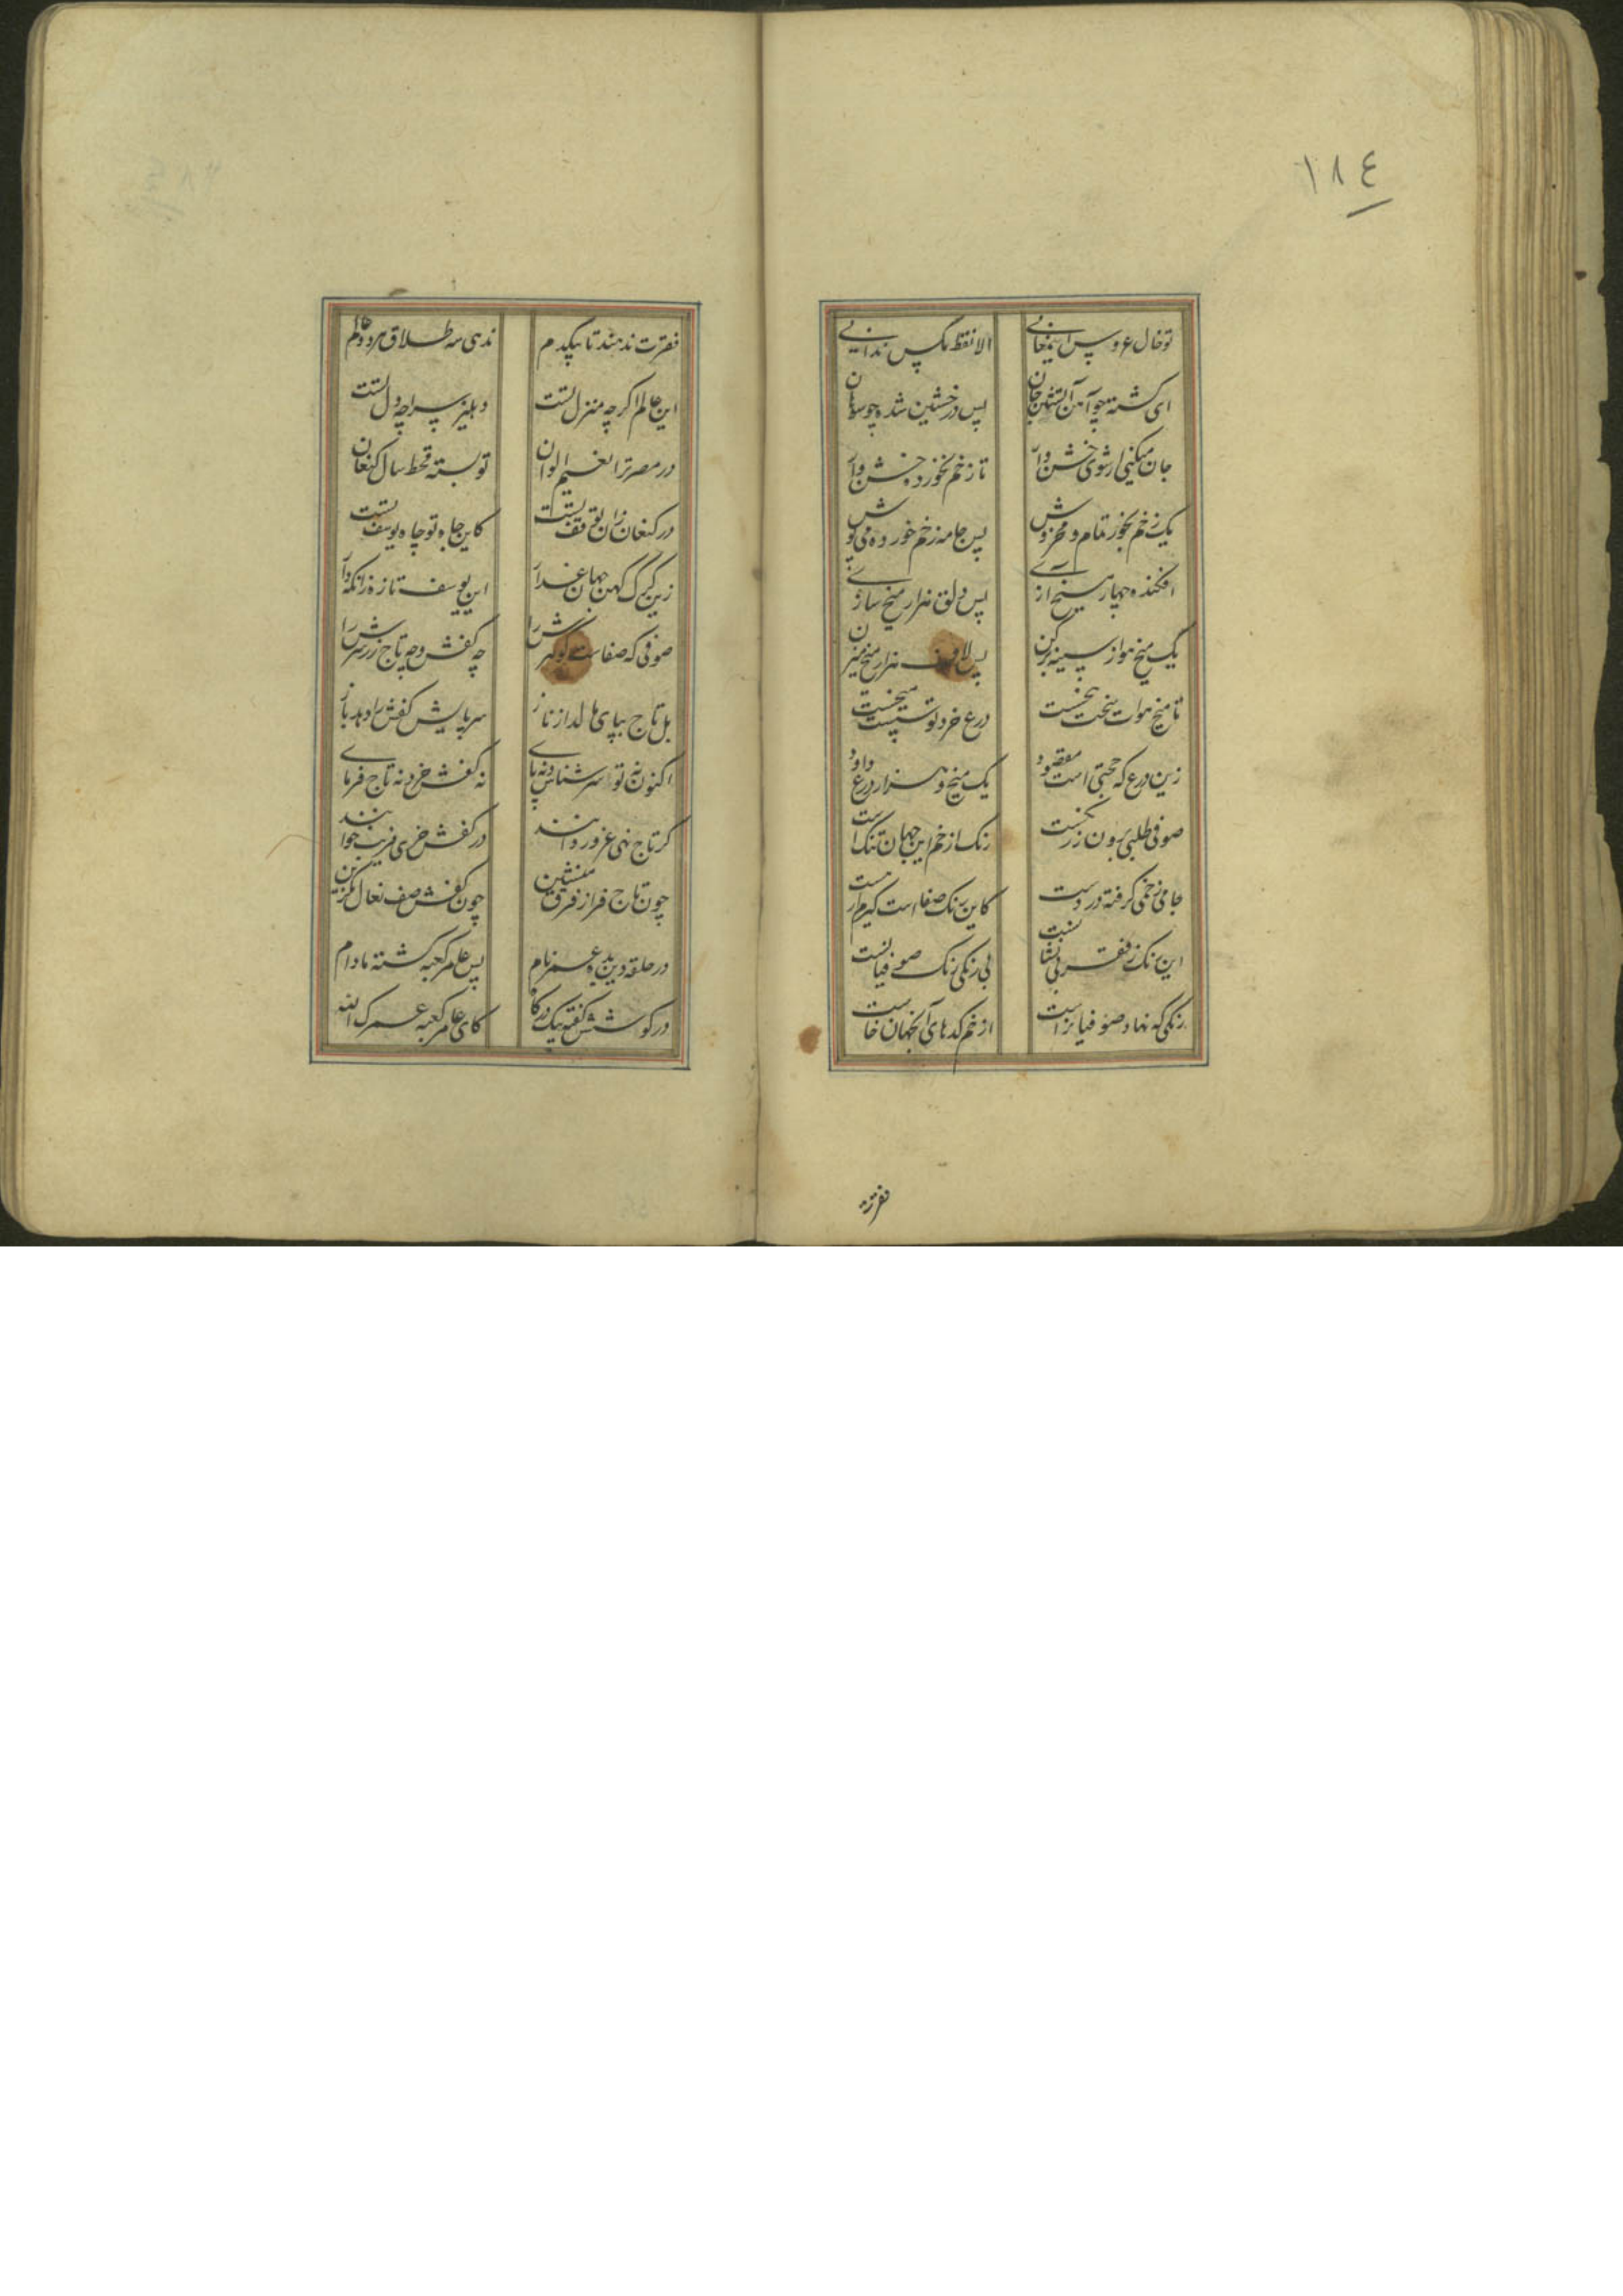 ١٨٤
تو خال عروس این معانی الا نقط مگس ندانی
ای کشته چو آهن آتشین جان پس در خشین شده چو سوهان
جان میکنی ار شوی خشن وار تا زخم نخورده خشن وار
یک زخم بخور تمام و مخروش پس جامه زخم خورده می پوش
افکنده چهار میخ آزی پس دلق هزار میخ سازی
یک میخ هوا ز سینه بر کن پس لاف هزار میخ میزن
تا میخ هوات سخت بیخست درع خرد تو سست میخست
زین درع که حجتی است مقصود یک میخ و هزار درع داود
صوفی طلبی برون ز رنگست رنگ از خم این جهان تنگ است
جامی ز خمی گرفته در دست کاین رنگ صفا است گیرم ار هست
این رنگ ز فقر بی نشانست بی رنگی رنگ صوفیانست
رنگی که نهاد صوفیانراست از خم کدهای آنجهان خاست
فقرت ندهند تا بیکدم ندهی سه طلاق هر دو عالم
این عالم اگر چه منزل تست دهلیز سراچه دل تست
در مصر ترا نعیم الوان تو بسته قحط سال کنعان
در کنعان زان توقفت نیست کاین جاه تو چاه یوسفت نیست
زین گرگ کهن جهان غدار این یوسف تازه را نگه دار
صوفی که صفاست گوهرش را چه کفش و چه تاج زر سرش را
بل تاج بپای مالد از ناز سر پایش کفش را دهد باز
اکنون نه تو سر شناس و نه پای نه کفش خر و نه تاج فرمای
گر تاج نهی غرور دانند در کفش خری فریب خوانند
چون تاج فراز فرق منشین چون کفش صف نعال بگزین
در حلقه دین بده عمر نام پس عامر کعبه گشته مادام
در گوشش گفته پیک درگاه کای عامر کعبه عمرک الله
فقرت